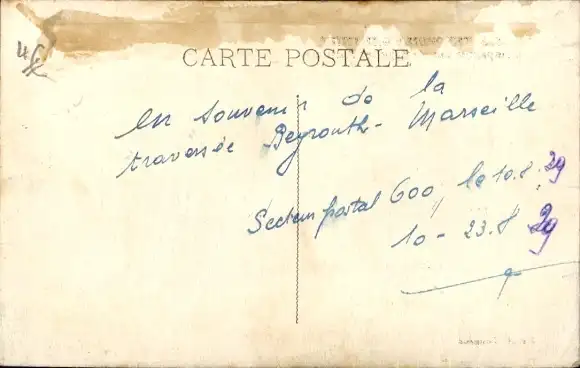 CARTE POSTALE
en souvenir de la
traversée Beyrouth - Marseille
Secteur postal 600, le 10.8.29
10 - 23.8 29